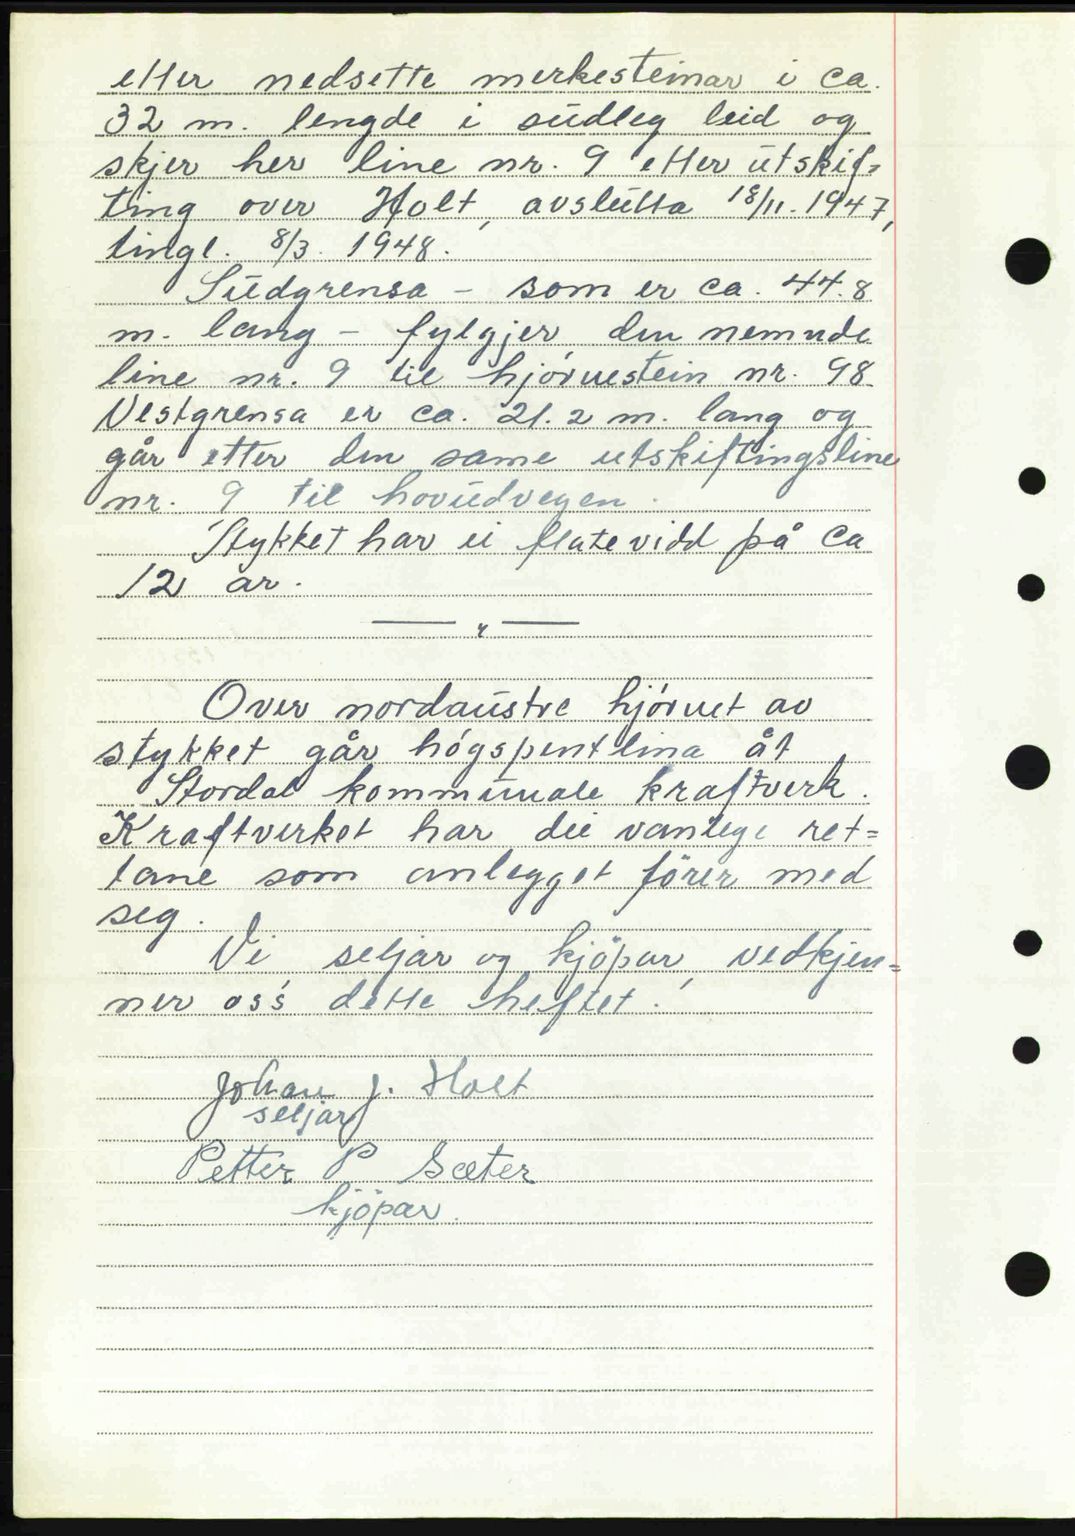 etter nedsette merkesteinar i ca.
32 m. lengde i sudleg leid og
skjer her line nr. 9 etter utskif=
ting over Holt, avslutta 18/11. 1947,
tingl. 8/3. 1948.
Sudgrensa - som er ca. 44.8
m. lang - fylgjer den nemnde
line nr. 9 til hjørnestein nr. 98
Vestgrensa er ca. 21.2 m. lang og
går etter den same utskiftingsline
nr. 9 til hovudvegen.
Stykket har ei flatevidd på ca
12 ar.
Over nordaustre hjørnet av
stykket går høgspentlina åt
Stordal kommunale kraftverk.
Kraftverket har dei vanlege ret=
tane som anlegget fører med
seg.
Vi, seljar og kjöpar, vedkjen=
ner oss dette heftet.
Johan J. Holt
seljar
Petter P Sæter
kjöpar.